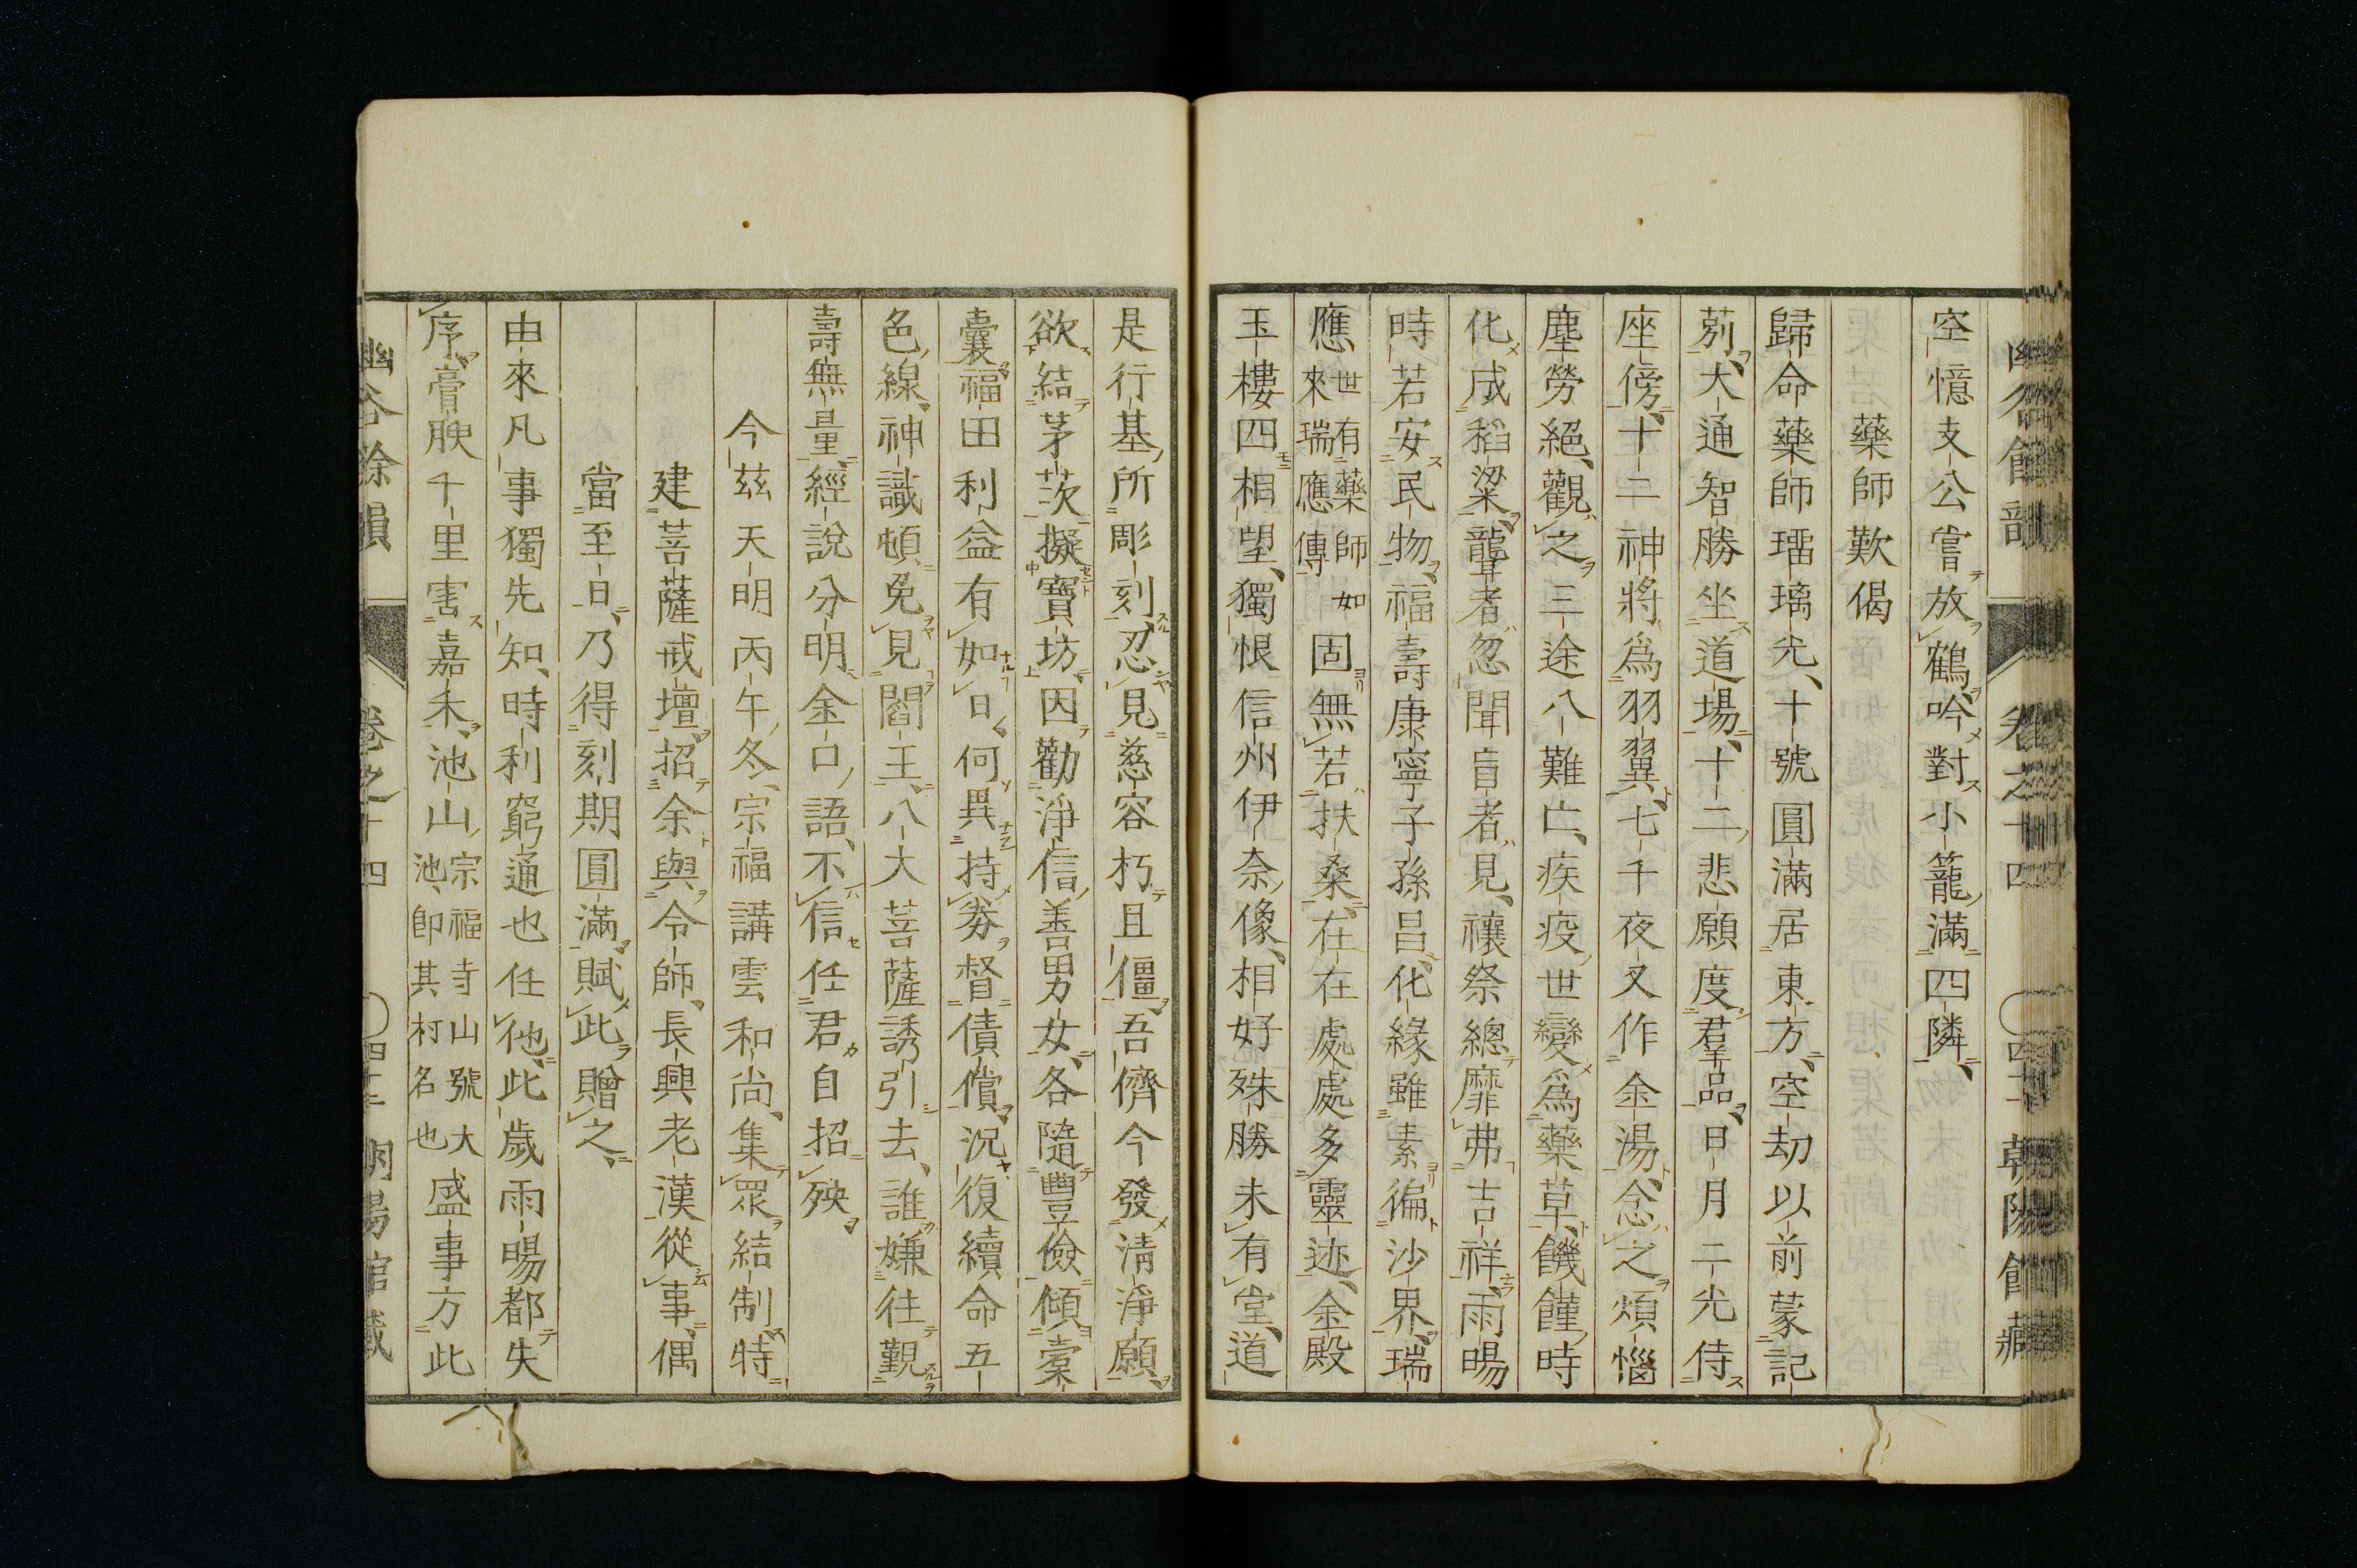 空憶支公嘗放鶴吟對小籠滿四隣
藥師歎偈
歸命藥師瑠璃光十號圓滿居東方空劫以前蒙記
莂大通智勝坐道場十二悲願度羣品日月二光侍
座傍十二神將爲羽翼七千夜叉作金湯念之煩惱
塵勞絕觀之三途八難亡疾疫世變爲藥草饑饉時
化成稻粱聾者忽聞盲者見禳祭總靡弗吉祥雨暘
時若安民物福壽康寧子孫昌化緣雖素徧沙界瑞
應世有藥師如來瑞應傳固無若扶桑在在處處多靈迹金殿
玉樓四相望獨恨信州伊奈像相好殊勝未有堂道
是行基所彫刻忍見慈容朽且僵吾儕今發淸淨願
欲結茅茨擬寶坊因勸淨信善男女各隨豐儉傾橐
囊福田利益有如日何異持券督債償況復續命五
色線神識頓免見閻王八大菩薩誘引去誰嫌往覲
壽無量經說分明金口語不信任君自招殃
今茲天明丙午冬宗福講雲和尚集眾結制特
建菩薩戒壇招余與令師長興老漢從事偶
當至日乃得刻期圓滿賦此贈之
由來凡事獨先知時利窮通也任他此歲雨暘都失
序膏腴千里害嘉禾池山宗福寺山號大池卽其村名也盛事方此
幽谷餘韻 卷之十四 朝陽館藏